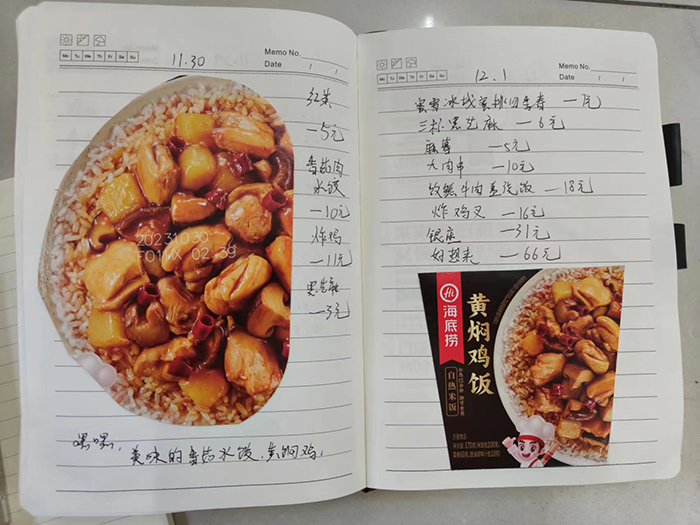 Memo No.
Mo Tu We Th Fr Sa Su
Date / /
11.30
红茶
—5元
香菇肉
水饺
—10元
炸鸡
—11元
黑芝麻
—3元
20231030
02:39
嘿嘿,美味的香菇水饺,黄焖鸡,
Memo No.
Mo Tu We Th Fr Sa Su
Date / /
12.1
蜜雪冰城蜜桃四季春 —1元
三杯黑芝麻 —6元
麻薯 —5元
大肉串 —10元
牛肉盖浇饭 —18元
炸鸡叉 —16元
银座 —31元
好想来 —66元
Hi
海底捞
黄焖鸡饭
自热米饭